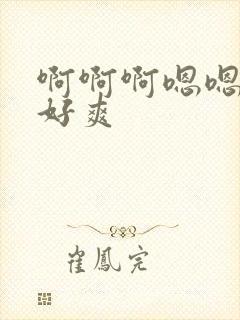 啊啊啊嗯嗯
好爽
崔鳳完